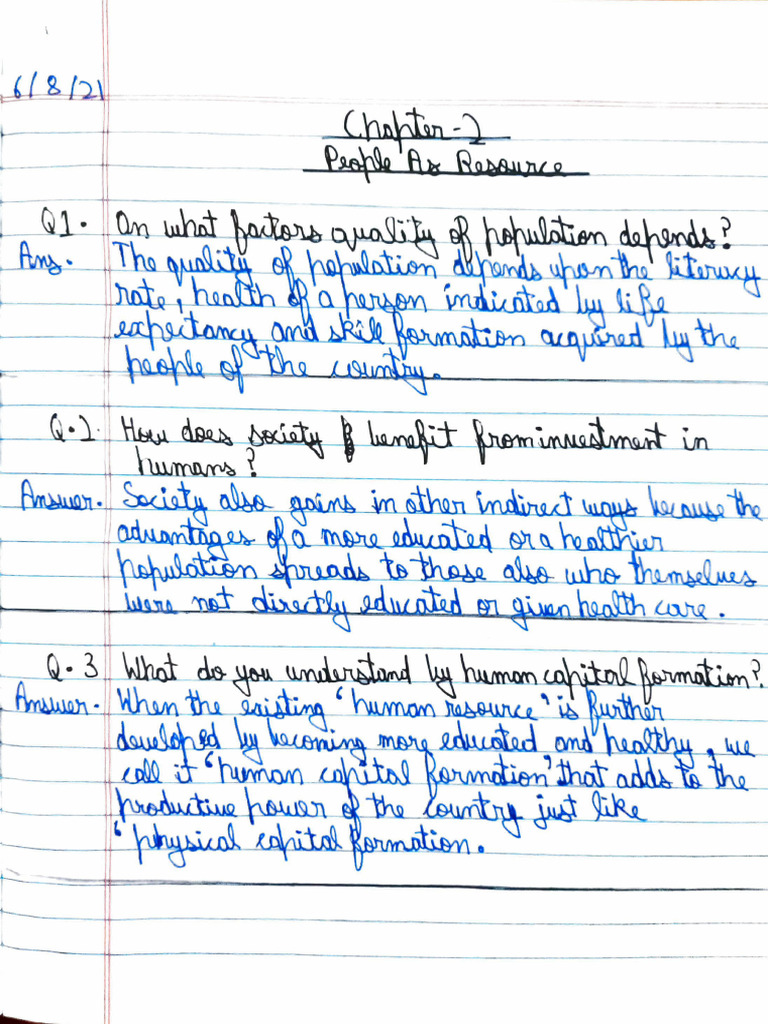 6/8/21
Chapter-2
People As Resource
Q1. On what factors quality of population depends?
Ans. The quality of population depends upon the literucy
rate, health of a person indicated by life
expectancy and skill formation acquired by the
people of the country.
Q.2. How does society benefit from investment in
humans?
Answer. Society also gains in other indirect ways because the
advantages of a more educated or a healthier
population spreads to those also who themselves
were not directly educated or given health care.
Q.3 What do you understand by human capital formation?
Answer. When the existing 'human resource' is further
developed by becoming more educated and healthy, we
call it 'human capital formation' that adds to the
productive power of the country just like
'physical capital formation.